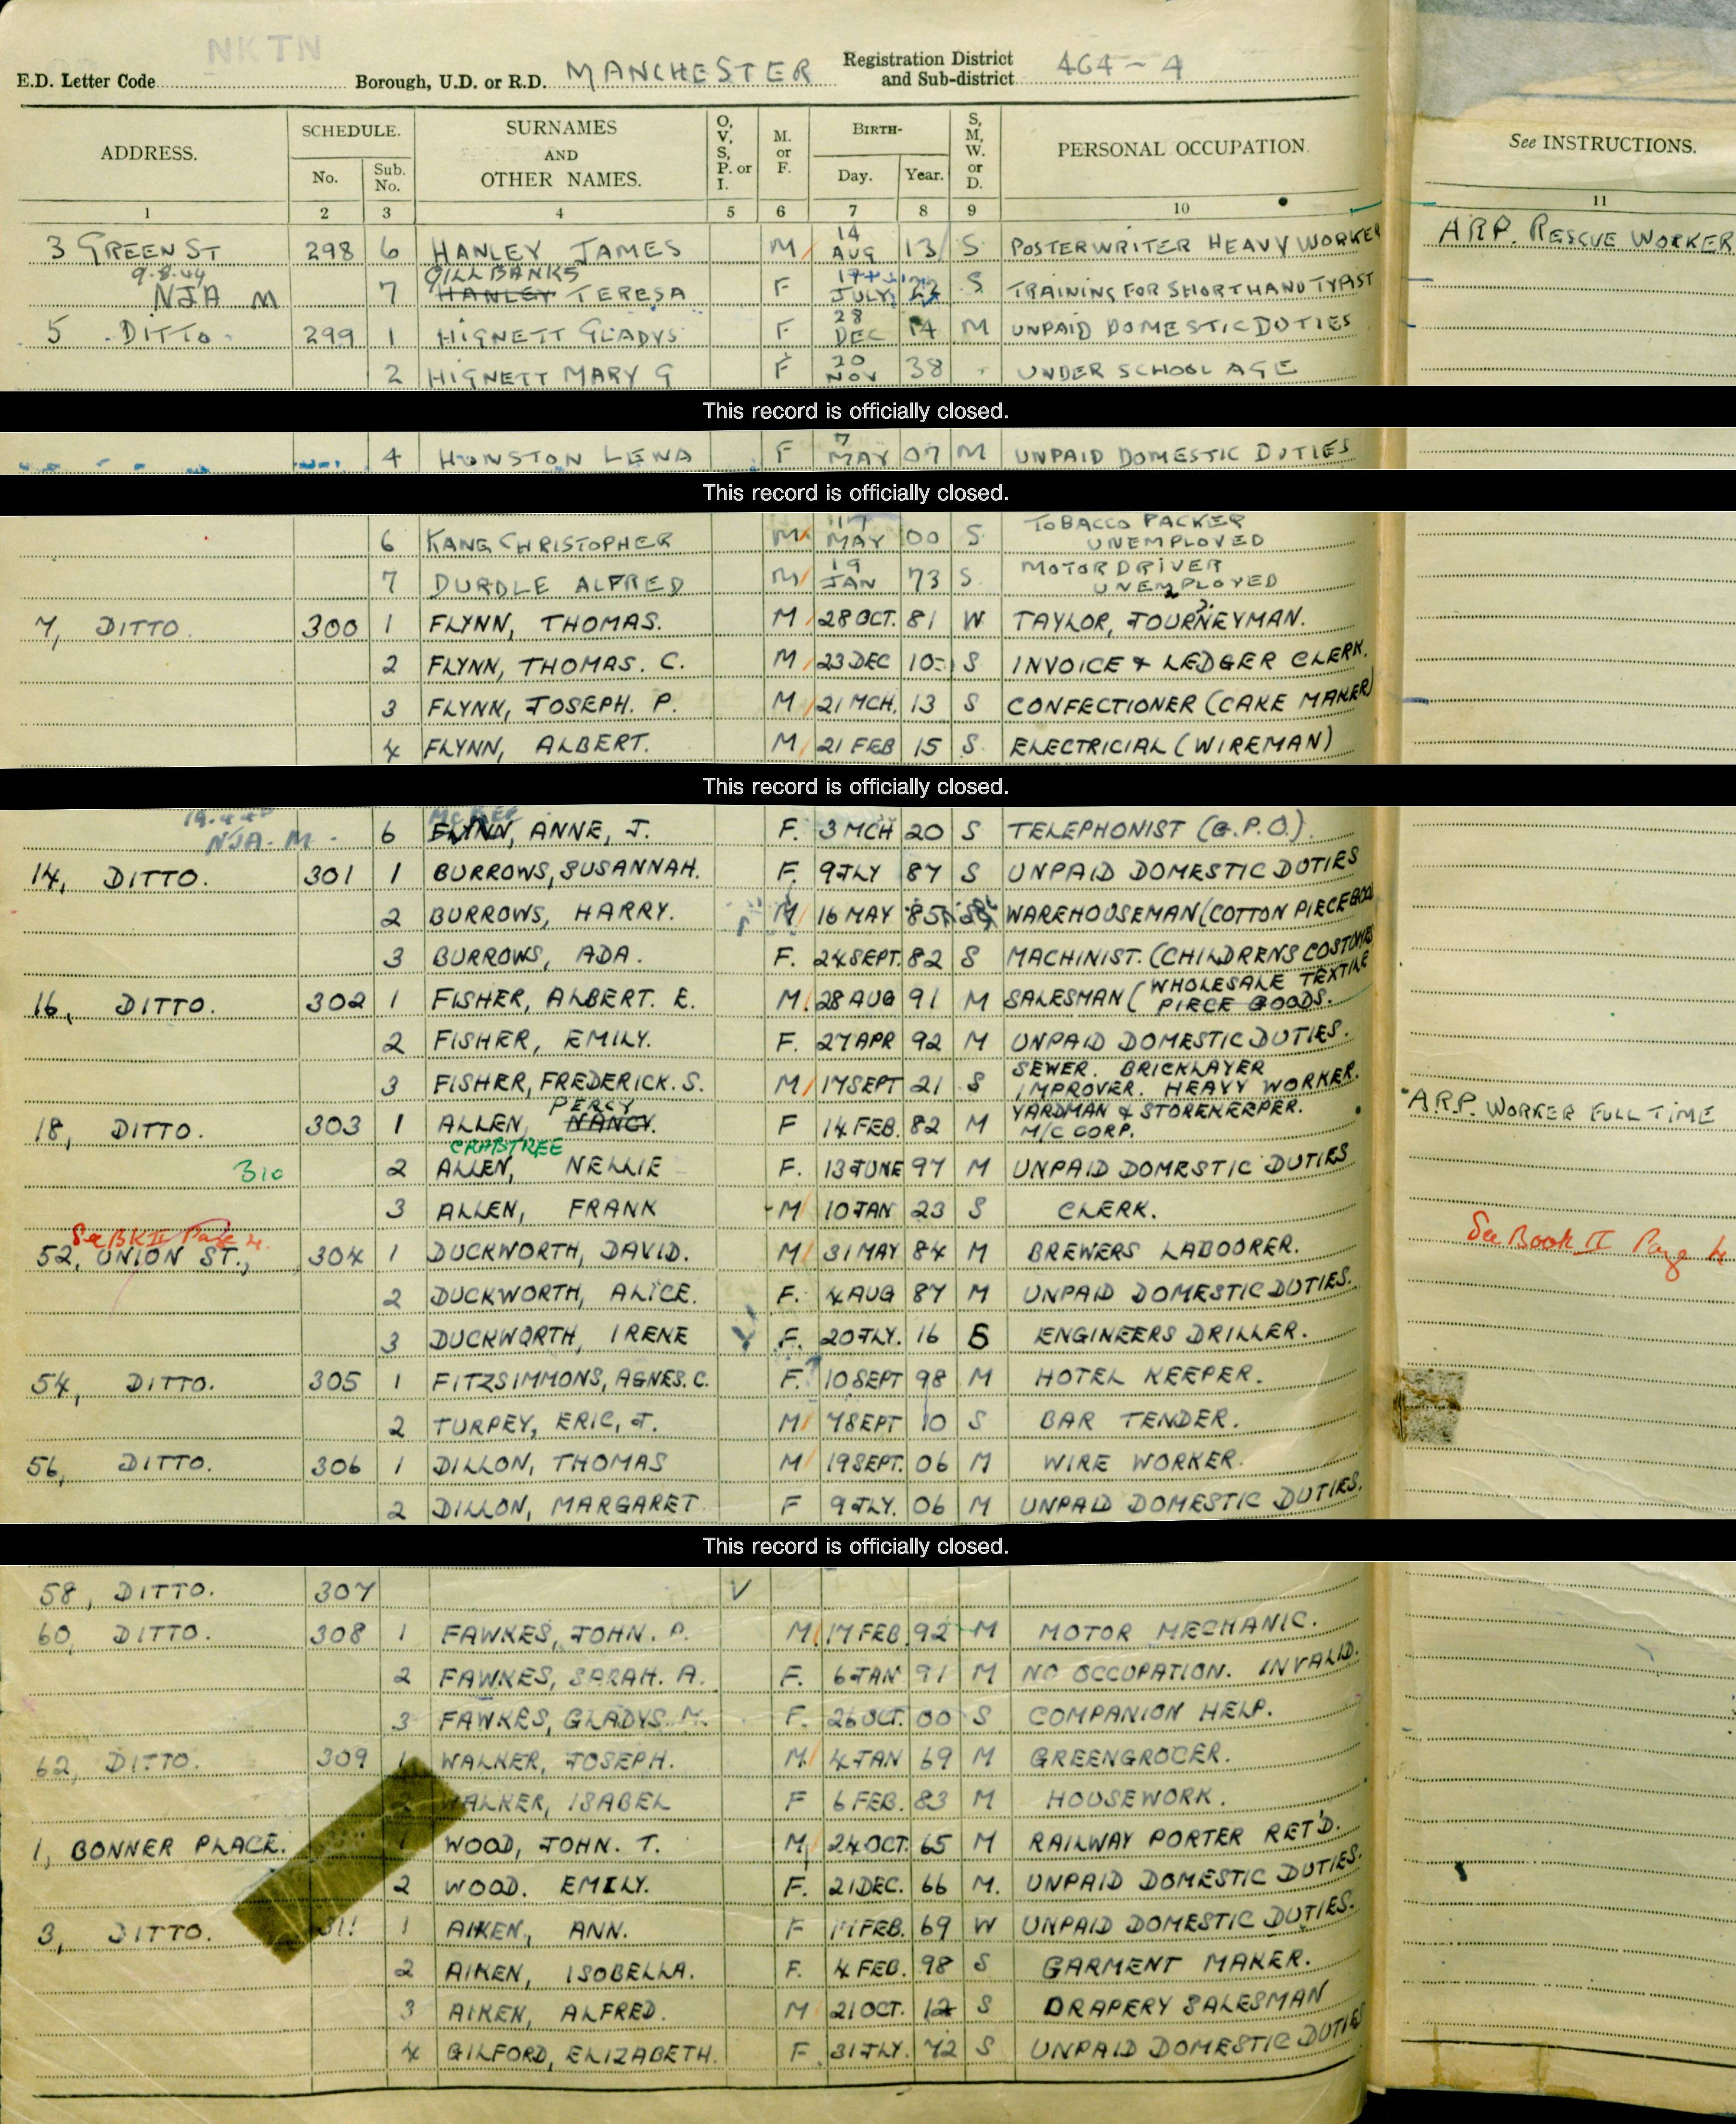 NKTN
E.D. Letter Code Borough, U.D. or R.D. MANCHESTER Registration District and Sub-district 464-4
ADDRESS. SCHEDULE. No. Sub. No. SURNAMES AND OTHER NAMES. O, V, S, P. or I. M. or F. BIRTH- Day. Year. S, M, W. or D. PERSONAL OCCUPATION. See INSTRUCTIONS.
1 2 3 4 5 6 7 8 9 10 11
3 GREEN ST 298 6 HANLEY JAMES M 14 AUG 13 S POSTERWRITER HEAVY WORKER A.R.P. RESCUE WORKER
9.8.44 GILLBANKS
NJA M 7 HANLEY TERESA F JULY S TRAINING FOR SHORTHAND TYPIST
5 DITTO 299 1 HIGNETT GLADYS F 28 DEC 14 M UNPAID DOMESTIC DUTIES
2 HIGNETT MARY G F 20 NOV 38 UNDER SCHOOL AGE
This record is officially closed.
4 HUNSTON LENA F 7 MAY 07 M UNPAID DOMESTIC DUTIES
This record is officially closed.
6 KANG CHRISTOPHER M 17 MAY 00 S TOBACCO PACKER UNEMPLOYED
7 DURDLE ALFRED M 19 JAN 73 S. MOTOR DRIVER UNEMPLOYED
7, DITTO. 300 1 FLYNN, THOMAS. M 28 OCT. 81 W TAYLOR, JOURNEYMAN.
2 FLYNN, THOMAS. C. M 23 DEC 10 S INVOICE & LEDGER CLERK.
3 FLYNN, JOSEPH. P. M 21 MCH. 13 S CONFECTIONER (CAKE MAKER)
4 FLYNN, ALBERT. M 21 FEB 15 S. ELECTRICIAL (WIREMAN)
This record is officially closed.
McKEE
NJA. M. 6 FLYNN, ANNE, J. F. 3 MCH 20 S TELEPHONIST (G.P.O.).
14, DITTO. 301 1 BURROWS, SUSANNAH. F. 9 JLY 87 S UNPAID DOMESTIC DUTIES
2 BURROWS, HARRY. M 16 MAY 85 WAREHOUSEMAN (COTTON PIECEGOOD
3 BURROWS, ADA. F. 24 SEPT. 82 S MACHINIST. (CHILDRENS COSTUMES
16, DITTO. 302 1 FISHER, ALBERT. E. M. 28 AUG 91 M SALESMAN (WHOLESALE TEXTILE PIECE GOODS.
2 FISHER, EMILY. F. 27 APR 92 M UNPAID DOMESTIC DUTIES.
3 FISHER, FREDERICK. S. M 17 SEPT 21 S SEWER. BRICKLAYER IMPROVER. HEAVY WORKER.
PERCY
18, DITTO. 303 1 ALLEN, NANCY. F 14 FEB. 82 M YARDMAN & STOREKEEPER. M/C CORP. A.R.P. WORKER FULL TIME
CRABTREE
310 2 ALLEN, NELLIE F. 13 JUNE 97 M UNPAID DOMESTIC DUTIES
3 ALLEN, FRANK M 10 JAN 23 S CLERK.
See BK II Page 4.
52, UNION ST., 304 1 DUCKWORTH, DAVID. M 31 MAY 84 M BREWERS LABOORER. See Book II Page 4
2 DUCKWORTH, ALICE. F. 4 AUG 87 M UNPAID DOMESTIC DUTIES.
3 DUCKWORTH, IRENE F. 20 JLY. 16 S ENGINEERS DRILLER.
54, DITTO. 305 1 FITZSIMMONS, AGNES. C. F. 10 SEPT 98 M HOTEL KEEPER.
2 TURPEY, ERIC, J. M 7 SEPT 10 S BAR TENDER.
56, DITTO. 306 1 DILLON, THOMAS M 19 SEPT. 06 M WIRE WORKER.
2 DILLON, MARGARET F 9 JLY. 06 M UNPAID DOMESTIC DUTIES.
This record is officially closed.
58, DITTO. 307 V
60, DITTO. 308 1 FAWKES, JOHN. P. M 17 FEB. 92 M MOTOR MECHANIC.
2 FAWKES, SARAH. A. F. 6 JAN 91 M NO OCCUPATION. INVALID.
3 FAWKES, GLADYS. M. F. 26 OCT. 00 S COMPANION HELP.
62, DITTO. 309 1 WALKER, JOSEPH. M 4 JAN 69 M GREENGROCER.
2 WALKER, ISABEL F 6 FEB. 83 M HOUSEWORK.
1, BONNER PLACE. 1 WOOD, JOHN. T. M 24 OCT. 65 M RAILWAY PORTER RET'D.
2 WOOD. EMILY. F. 21 DEC. 66 M. UNPAID DOMESTIC DUTIES.
3, DITTO. 311 1 AIKEN, ANN. F 17 FEB. 69 W UNPAID DOMESTIC DUTIES.
2 AIKEN, ISOBELLA. F. 4 FEB. 98 S GARMENT MAKER.
3 AIKEN, ALFRED. M 21 OCT. 12 S DRAPERY SALESMAN
4 GILFORD, ELIZABETH. F. 31 JLY. 72 S UNPAID DOMESTIC DUTIES